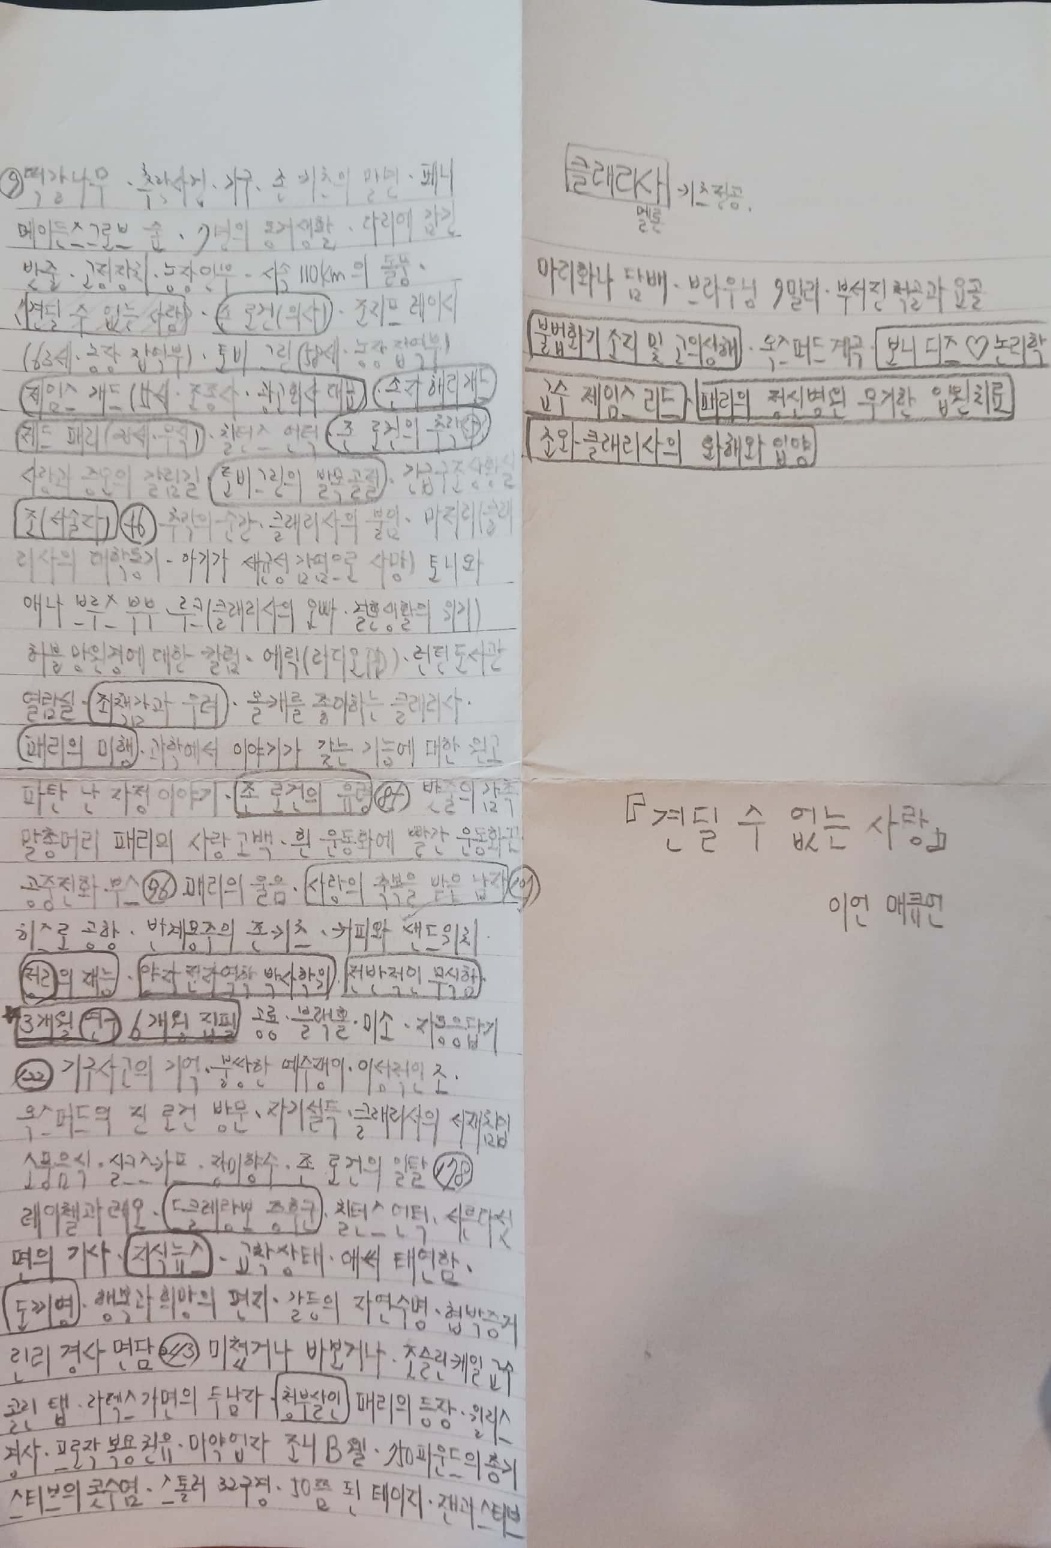 ⑨ 떡갈나무 · 추락사건 · 기구 · 존 키츠의 말년 · 패니
메이든스그로브 숲 · 7년의 동거생활 · 다리에 감긴
밧줄 · 고정장치 · 농장인부 - 시속 110km의 돌풍 ·
(견딜 수 있는 사람) · 존 로건(의사) · 조지프 레이시
(63세 · 농장 잡역부) · 토비 그린(58세 · 농장 잡역부)
제임스 개드(55세 · 조종사 · 광고회사 대표) 손자 해리 개드
제드 패리 · 칠턴스 언덕 존 로건의 추락
사랑과 증오의 갈림길 · 토비그린의 발목골절 ·
조(서술자) 46 추락의 순간 · 클래리사의 불임 · 마저리(클래
리사의 대학동기 - 아기가 세균성 감염으로 사망) 토니와
애나 브루스 부부 · 루크(클래리사의 오빠 · 결혼생활의 위기)
허블 망원경에 대한 컬럼 · 에릭(라디오PD) · 런던도서관
열람실 · 죄책감과 우려 · 올개를 좋아하는 클래리사 ·
패리의 미행 · 과학에서 이야기가 갖는 기능에 대한 원고
파탄 난 가정 이야기 · 존 로건의 유령 84 밧줄의 감촉
말총머리 패리의 사랑 고백 · 흰 운동화에 빨간 운동화끈
공중전화 부스 96 패리의 울음 · 사랑의 축복을 받은 남자
히스로 공항 · 반제몽주의 존 키츠 · 커피와 샌드위치 ·
정리의 재능 · 양자 전자역학 박사학위 · 전반적인 무식함
*3개월 연구 6개월 집필 공룡 · 블랙홀 · 미소 · 자동응답기
122 기구사고의 기억 · 불쌍한 예수쟁이 · 이성적인 조 ·
옥스퍼드의 진 로건 방문 · 자기설득 · 클래리사의 서재침입
소풍음식 · 실크스카프 · 장미향수 · 존 로건의 일탈 178
레이첼과 레오 · 드클레랑보 증후군 · 칠턴스 언덕 · 서른다섯
편의 기사 · 지식뉴스 - 교착상태 · 애써 태연함 ·
토끼염 · 행복과 희망의 편지 · 갈등의 자연수명 · 협박증거
린리 경사 면담 213 미쳤거나 바보거나 · 조슬린 케일 교수
콜린 탭 · 라텍스가면의 두남자 · 청부살인 패리의 등장 · 월리스
경사 · 프로작 복용권유 · 마약업자 조니 B 웰 · 750파운드의 총기
스티브의 콧수염 · 스톨러 32구경 · 50쯤 된 데이지 · 잰과 스티브
클래리사 키츠전공.
멜론
마리화나 담배 · 브라우닝 9밀리 · 부서진 척골과 요골
불법화기 소지 및 고의상해 · 옥스퍼드 계곡 · 보니 디즈 ♡ 논리학
교수 제임스 리드 · 패리의 정신병원 무기한 입원치료
조와 클래리사의 화해와 입양
『견딜 수 없는 사랑』
이언 매큐언